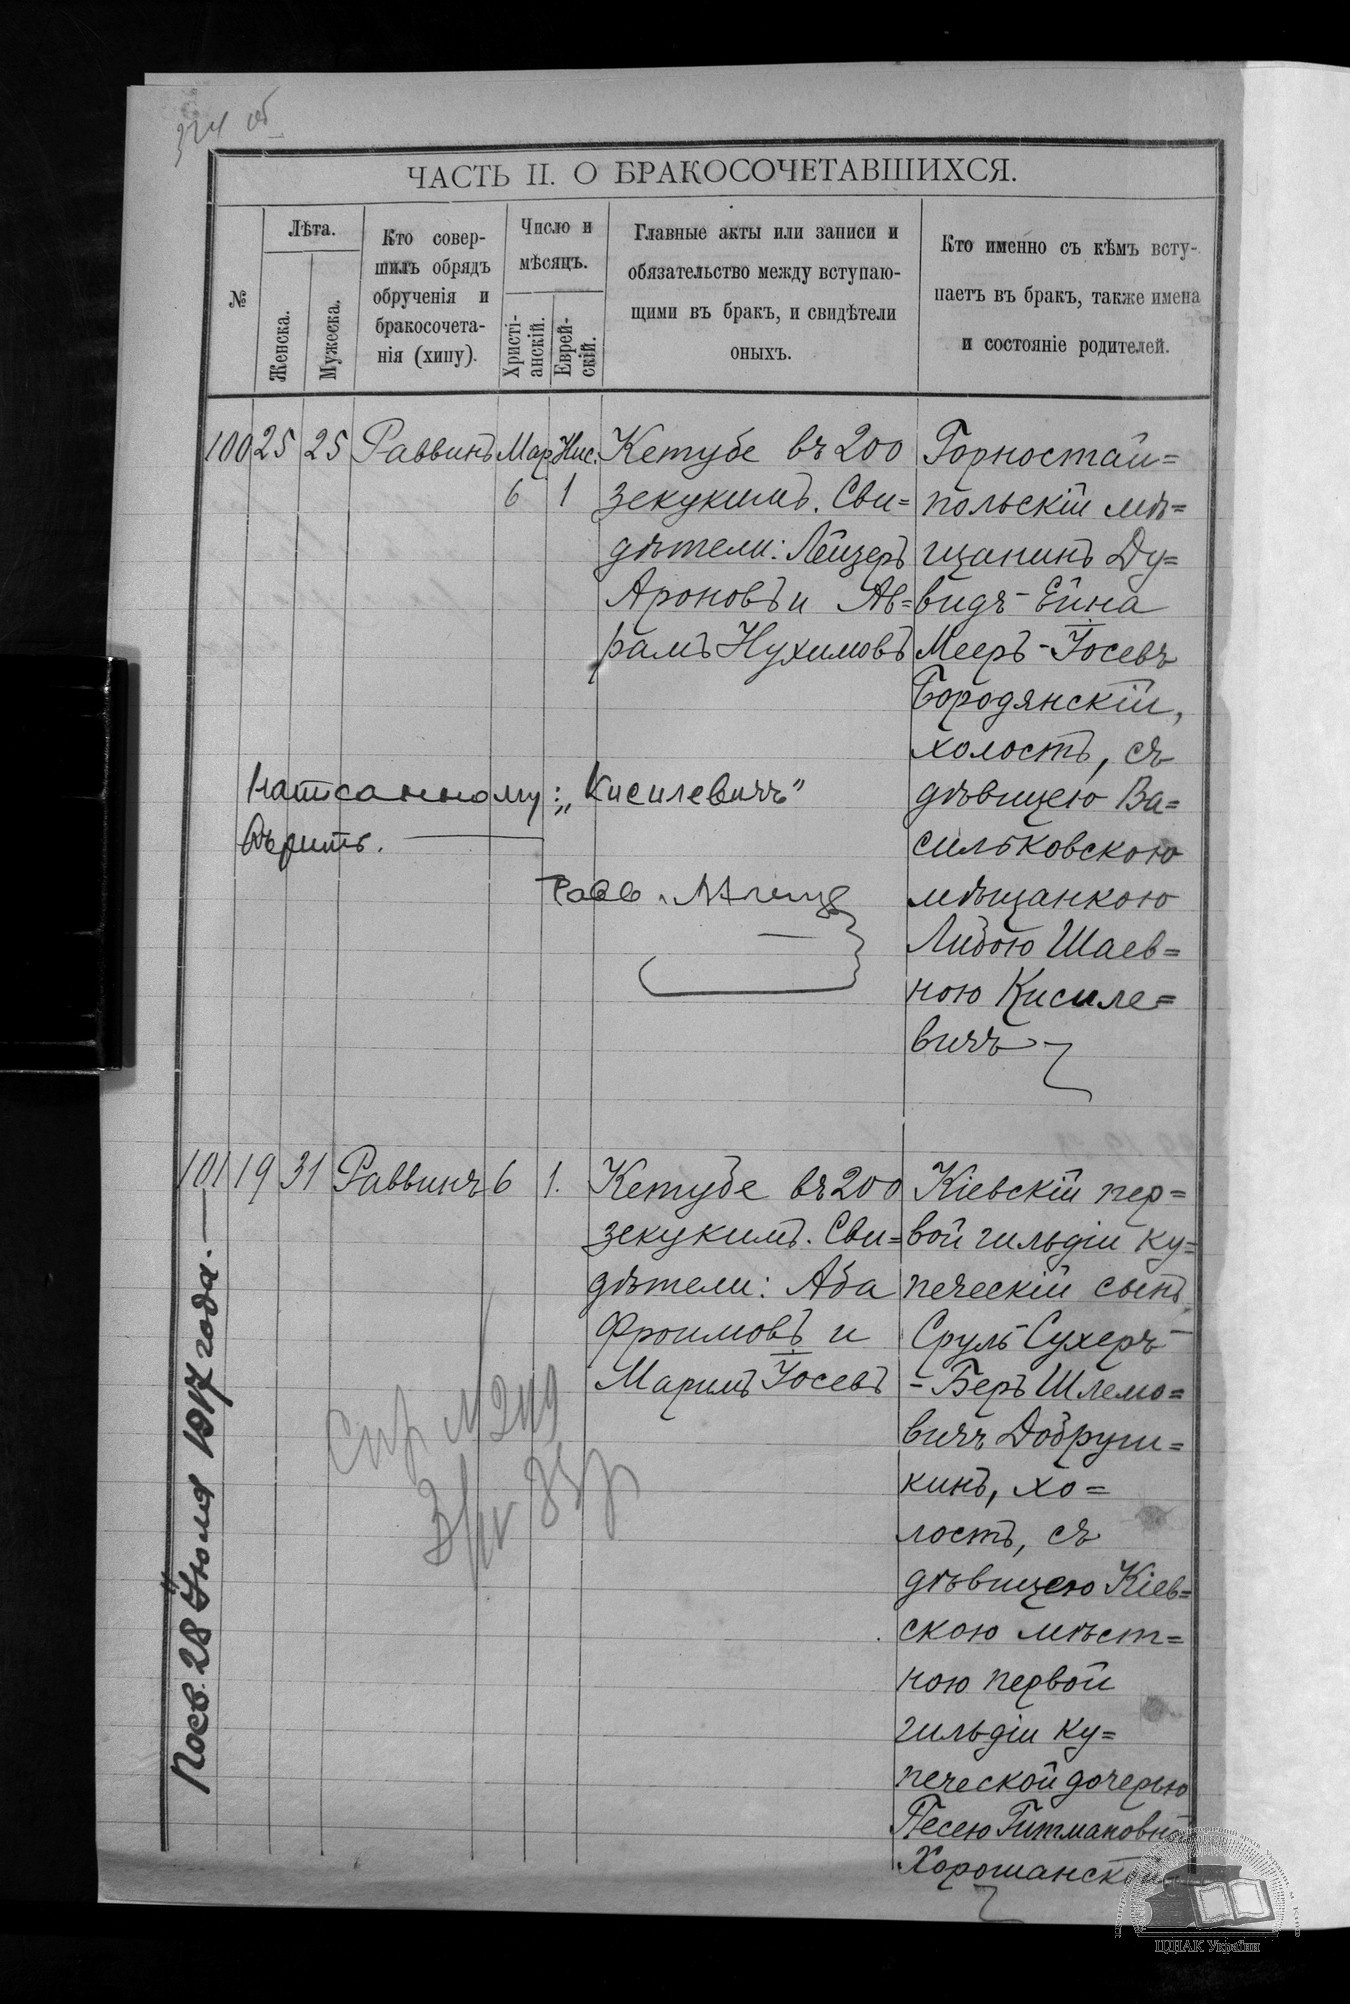 324 об
ЧАСТЬ II. О БРАКОСОЧЕТАВШИХСЯ.
№
Лѣта.
Женска.
Мужеска.
Кто совер-
шилъ обрядъ
обрученія и
бракосочета-
нія (хипу).
Число и
мѣсяцъ.
Христі-
анскій.
Еврей-
скій.
Главные акты или записи и
обязательство между вступаю-
щими въ бракъ, и свидѣтели
оныхъ.
Кто именно съ кѣмъ всту-
паетъ въ бракъ, также имена
и состояніе родителей.
100 25 25 Раввинъ Мар Нис.
6 1
Кетубе въ 200
зекукимъ. Сви=
дѣтели: Лейзеръ
Ароновъ и Ав=
рамъ Нухимовъ
Горностай=
польскій мѣ=
щанинъ Ду=
видъ-Ейна
Мееръ-Іосевъ
Бородянскій,
холостъ, съ
дѣвицею Ва=
сильковскою
мѣщанкою
Либою Шаев=
ною Кисиле=
вичъ
Написанному: „Кисилевичъ"
вѣрить.
Равв.
101 19 31 Раввинъ 6 1.
Кетубе въ 200
зекукимъ. Сви=
дѣтели: Аба
Фроимовъ и
Маримъ Іосевъ
Кіевскій пер=
вой гильдіи ку=
печескій сынъ
Сруль Сухеръ-
-Беръ Шлемо=
вичъ Добруш=
кинъ, хо=
лостъ, съ
дѣвицею Кіев=
скою мѣст=
ною первой
гильдіи ку=
печеской дочерью
Песею Гитмановной
Хорошанской
Посв. 28 Июля 1917 года.
ЦДІАК України